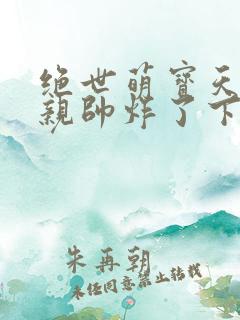 绝世萌宝天
亲帅炸了下
朱再朝
未经同意禁止转载